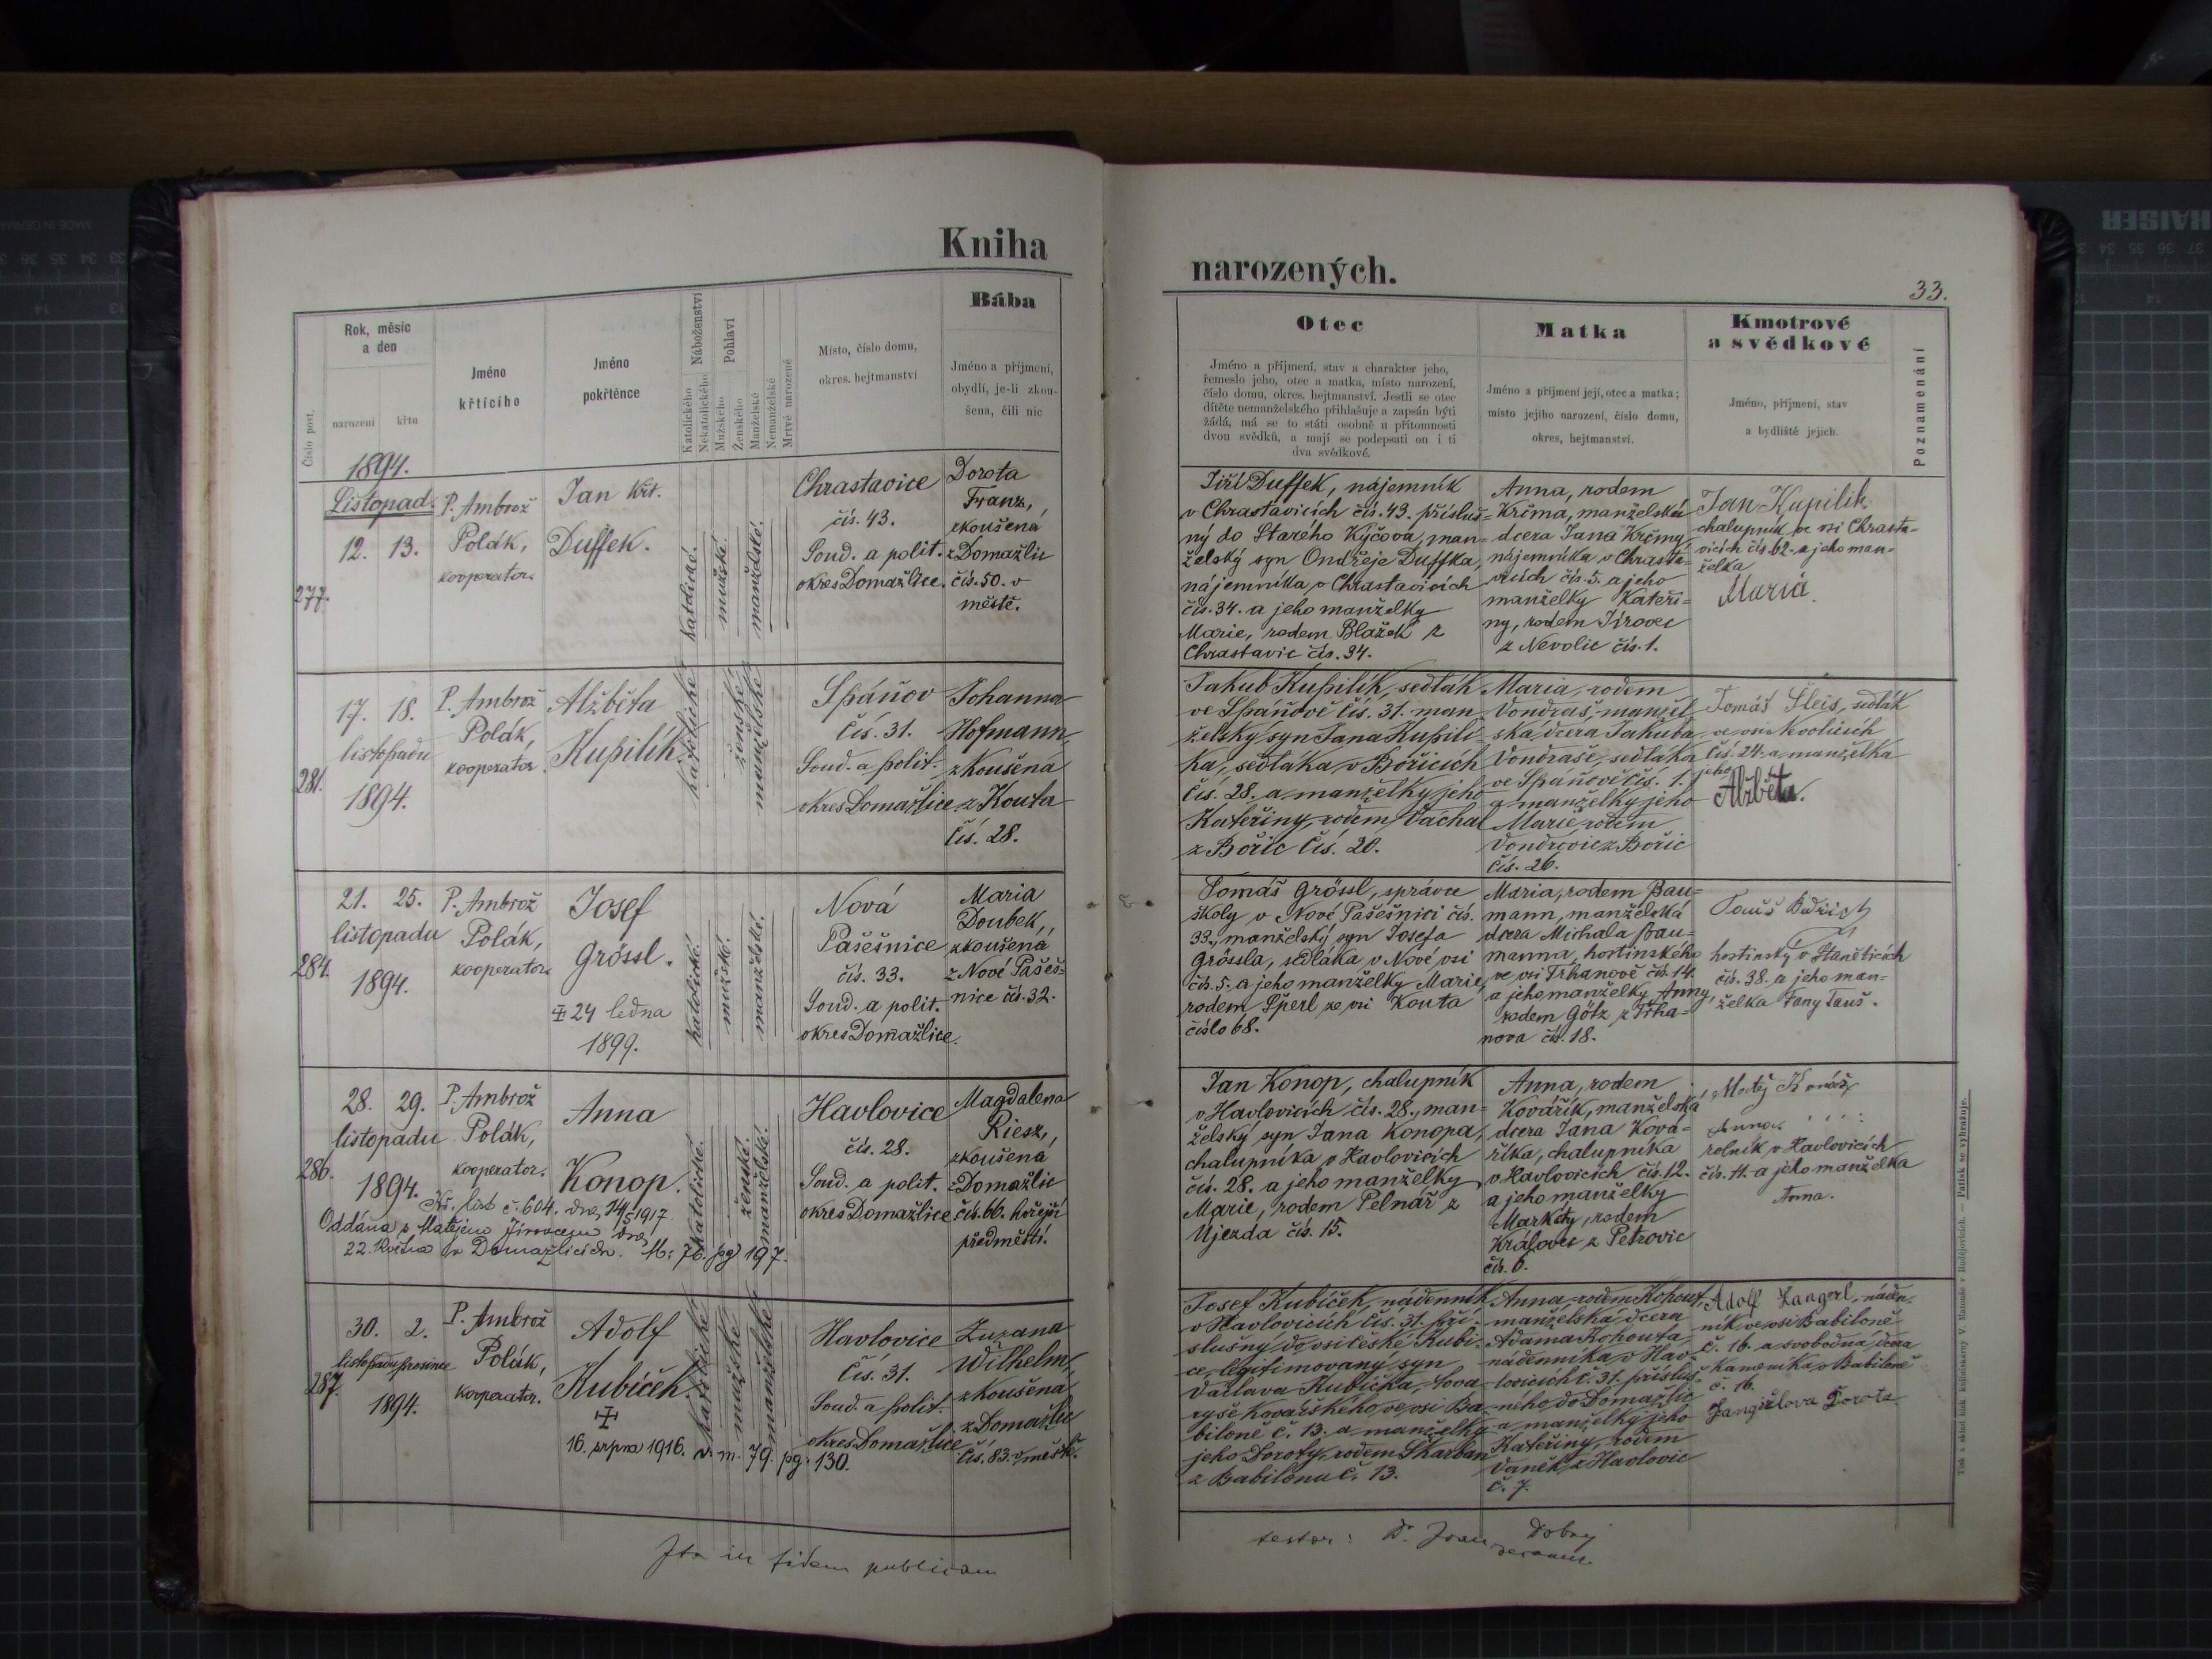 Kniha
narozených.
33.
Číslo post.
Rok, měsíc
a den
narození
křtu
Jméno
křtícího
Jméno
pokřtěnce
Náboženství
Katolického
Nekatolického
Pohlaví
Mužského
Ženského
Manželské
Nemanželské
Mrtvě narozené
Místo, číslo domu,
okres. hejtmanství
Bába
Jméno a příjmení,
obydlí, je-li zkou-
šena, čili nic
Otec
Jméno a příjmení, stav a charakter jeho,
řemeslo jeho, otec a matka, místo narození,
číslo domu, okres. hejtmanství. Jestli se otec
dítěte nemanželského přihlašuje a zapsán býti
žádá, má se to státi osobně u přítomnosti
dvou svědků, a mají se podepsati on i ti
dva svědkové.
Matka
Jméno a příjmení její, otec a matka;
místo jejího narození, číslo domu,
okres, hejtmanství.
Kmotrové
a svědkové
Jméno, příjmení, stav
a bydliště jejich.
Poznamenání
1894.
Listopad.
12. 13.
277.
P. Ambrož
Polák,
kooperator.
Jan Křt.
Duffek.
katolické.
mužské.
manželské.
Chrastavice
čís. 43.
Soud. a polit.
okres Domažlice.
Dorota
Franz,
zkoušená
z Domažlic
čís. 50. v
městě.
Jiří Duffek, nájemník
v Chrastavicích čís. 43. přísluš-
ný do Starého Kýčova, man-
želský syn Ondřeje Duffka,
nájemníka v Chrastavicích
čís. 34. a jeho manželky
Marie, rodem Blažek z
Chrastavic čís. 34.
Anna, rodem
Krčma, manželská
dcera Jana Krčmy,
nájemníka v Chrasta-
vicích čís. 5. a jeho
manželky Kateři-
ny, rodem Jírovec
z Nevolic čís. 1.
Jan Kupilík
chalupník ve vsi Chrasta-
vicích čís. 62. a jeho man-
želka
Maria.
17. 18.
listopadu
1894.
281.
P. Ambrož
Polák,
kooperator.
Alžběta
Kupilík.
katolické
ženské
manželské
Spáňov
čís. 31.
Soud. a polit.
okres Domažlice
Johanna
Hofmann,
zkoušena
z Kouta
čís. 28.
Jakub Kupilík, sedlák
ve Spáňově čís. 31. man-
želský syn Jana Kupilí-
ka, sedláka v Bořicích
čís. 28. a manželky jeho
Kateřiny, rodem Váchal
z Bořic čís. 20.
Maria, rodem
Vondraš, manžel-
ská dcera Jakuba
Vondraše, sedláka
ve Spáňově čís. 1.
a manželky jeho
Marie rodem
Vondrovic z Bořic
čís. 26.
Tomáš Šleis, sedlák
ve vsi Nevolicích
čís. 24. a manželka
jeho
Alžběta.
21. 25.
listopadu
1894.
284.
P. Ambrož
Polák,
kooperator.
Josef
Grössl.
24 ledna
1899.
katolické.
mužské.
manželské.
Nová
Pašešnice
čís. 33.
Soud. a polit.
okres Domažlice.
Maria
Doubek,
zkoušená
z Nové Pašeš-
nice čís. 32.
Tomáš Grössl, správce
školy v Nové Pašešnici čís.
33., manželský syn Josefa
Grössla, sedláka v Nové vsi
čís. 5. a jeho manželky Marie,
rodem Šperl ze vsi Kouta
číslo 68.
Maria, rodem Bau-
mann, manželská
dcera Michala Bau-
manna, hostinského
ve vsi Trhanově čís. 14.
a jeho manželky Anny,
rodem Götz z Trha-
nova čís. 18.
Tauš
hostinský v Staněticích
čís. 38. a jeho man-
želka Fany Tauš.
28. 29.
listopadu
1894.
286.
P. Ambrož
Polák,
kooperator.
Anna
Konop.
Kř. list č. 604. dne 14/5 1917
Oddána s Matějem Jírovcem dne
22. května v Domažlicích. M: 76. pg 197.
katolické.
ženské.
manželské.
Havlovice
čís. 28.
Soud. a polit.
okres Domažlice
Magdalena
Riesz,
zkoušená
z Domažlic
čís. 66. hořejší
předměstí.
Jan Konop, chalupník
v Havlovicích čís. 28., man-
želský syn Jana Konopa,
chalupníka v Havlovicích
čís. 28. a jeho manželky
Marie, rodem Pelnář z
Újezda čís. 15.
Anna, rodem
Kovářík, manželská
dcera Jana Ková-
říka, chalupníka
v Havlovicích čís. 12.
a jeho manželky
Markéty, rodem
Královec z Petrovic
čís. 6.
Matěj
Anna
rolník v Havlovicích
čís. 11. a jeho manželka
Anna.
30. 2.
listopadu prosince
1894.
287.
P. Ambrož
Polák,
kooperator.
Adolf
Kubíček.
16. srpna 1916. v m. 79. pg. 130.
katolické
mužské
manželské
Havlovice
čís. 31.
Soud. a polit.
okres Domažlice
Zuzana
Wilhelm,
zkoušena
z Domažlic
čís. 83. v městě.
Josef Kubíček, nádenník
v Havlovicích čís. 31. pří-
slušný do vsi české Kubi-
ce, legitimovaný syn
Václava Kubíčka, tova-
ryše kovářského, ve vsi Ba-
biloně č. 13. a manželky
jeho Doroty, rodem Skarban
z Babilonu č. 13.
Anna, rodem Kohout,
manželská dcera
Adama Kohouta,
nádenníka v Hav-
lovicích č. 31. přísluš-
ného do Domažlic
a manželky jeho
Kateřiny, rodem
Vaněk, z Havlovic
č. 7.
Adolf Zangerl, náden-
ník ve vsi Babiloně
č. 16. a svobodná dcera
kameníka v Babiloně
č. 16.
Dorota
Ita in fidem publicam
testor: Dr. Joan Dobrý
decanus
Tisk a sklad tiskův kněhtiskárny V. Manouše v Budějovicích. — Patisk se vyhražuje.
KAISER
MADE IN GERMANY